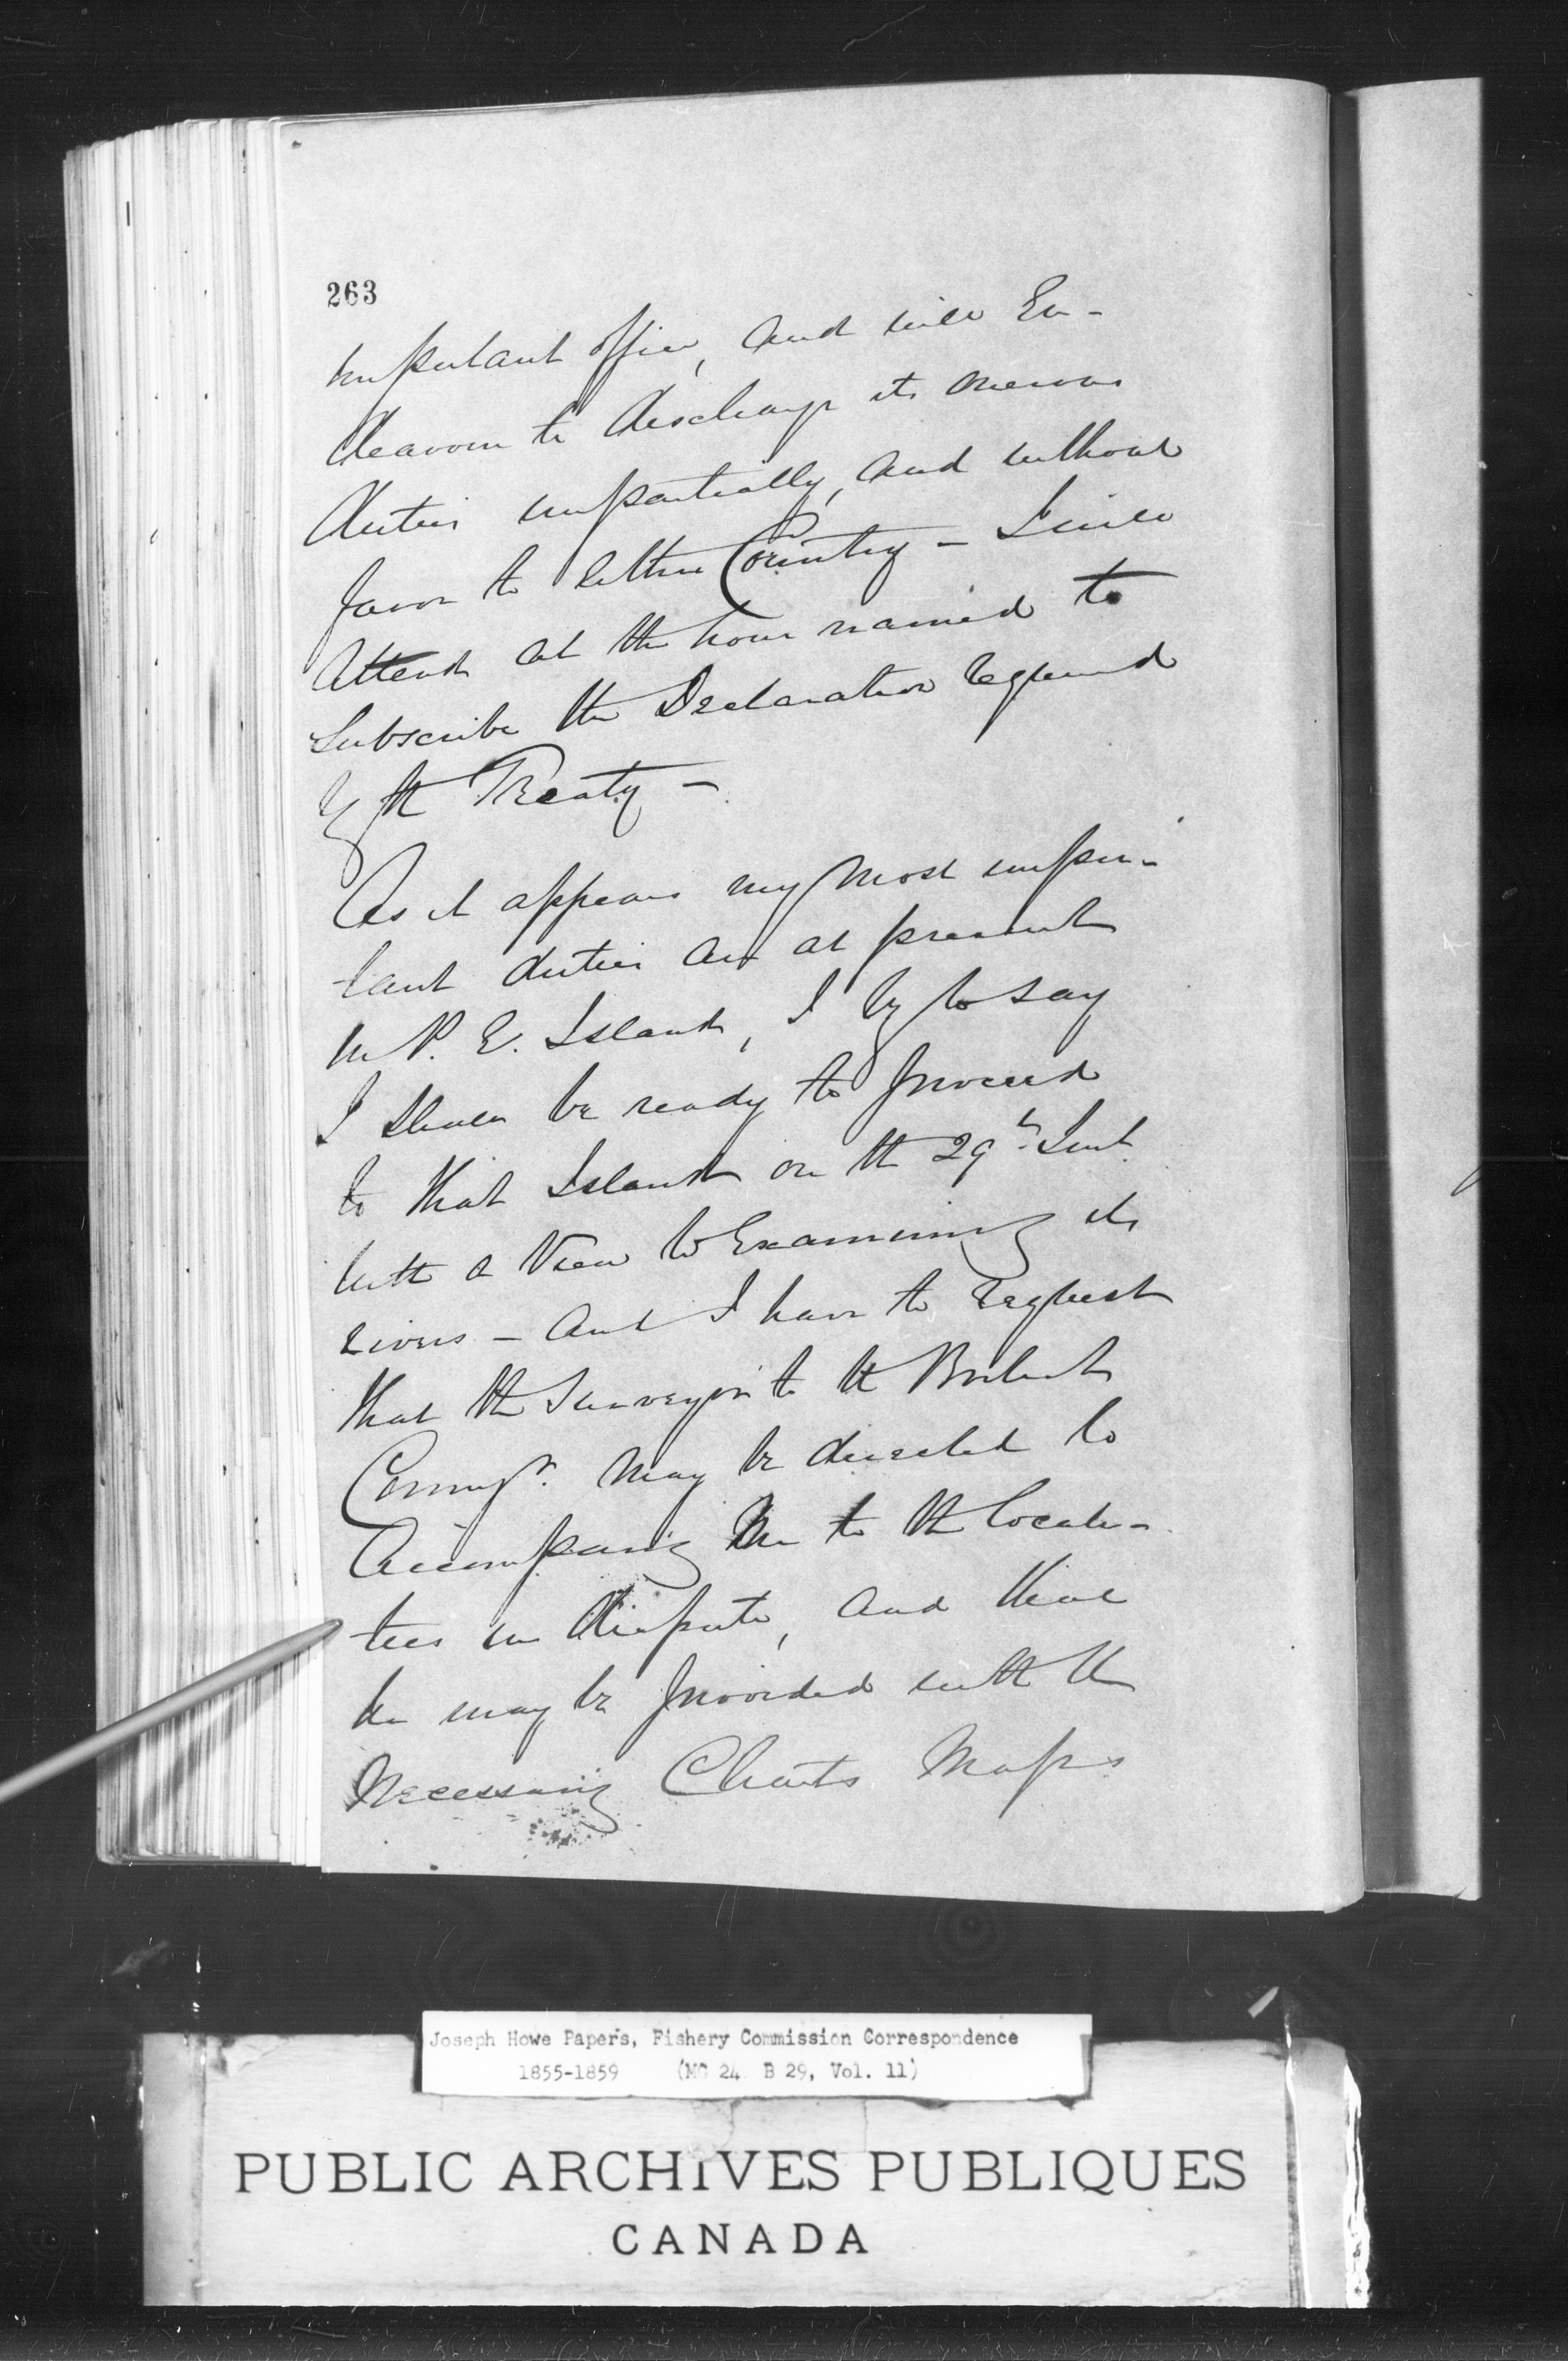 263
important office, and will En-
deavour to discharge its various
duties impartially, and without
favor to either Country - I will
attend at the hour named to
subscribe the Declaration required
by the Treaty -
As it appears my most impor-
tant duties are at present
in P. E. Island, I beg to say
I shall be ready to proceed
to that Island on the 29th Inst
with a View to Examining its
rivers - and I have to request
that the Surveyor to the British
Commr. may be directed to
accompany me to the locali-
ties in dispute, and that
he may be provided with the
necessary Charts Maps
Joseph Howe Papers, Fishery Commission Correspondence
1855-1859 (MG 24 B 29, Vol. 11)
PUBLIC ARCHIVES PUBLIQUES
CANADA